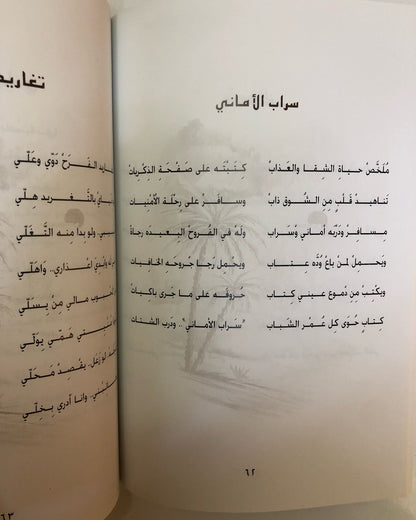 سراب الأماني
مُلَخَّصْ حياةِ الشِقا والعَذابْ كِتَبْتَه على صَفْحَةِ الذِّكْرياتْ
تناهيدْ قَلْبٍ مِنِ الشُّوق ذابْ وسافَرْ على رِحْلَةِ الأمْنِياتْ
مِسافِرْ ودَرْبِه أماني وسَرابْ ولَهْ في القُروحِ البِعيدَه رِجاةْ
ويحْمِلْ لمن باعْ وُدَّه عِتابْ ويحْمِلْ رجا جُروحَهِ الخافِياتْ
ويكْتِبْ مِنْ دموعْ عيني كِتابْ حُروفَه على ما جَرى باكِياتْ
كِتابٍ حَوى كلْ عُمْرِ الشَّبابْ "سَرابَ الأماني".. ودَربَ الشتات
٦٢
الفَرَحْ دَوِّي وعَلِّي
بالتَّغْريد هِلِّي
ولو بدا منه التَّغَلِّي
اعْذاري.. واهَلِّي
مالي مِنْ يسَلِّي
هَمِّي يوَلِّي
زعَل.. يقْصِد محَلِّي
وانا أدري بِخِلِّي
٦٣